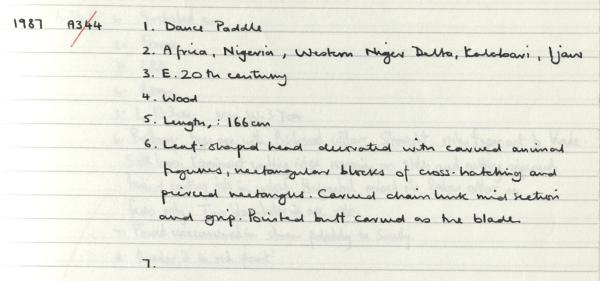 1987 A344 1. Dance Paddle
2. Africa, Nigeria, Western Niger Delta, Kalabari, Ijaw
3. E. 20th century
4. Wood
5. Length,: 166cm
6. Leaf-shaped head decorated with carved animal
figures, rectangular blocks of cross-hatching and
pierced rectangles. Carved chain link mid section
and grip. Pointed butt carved as the blade.
7.